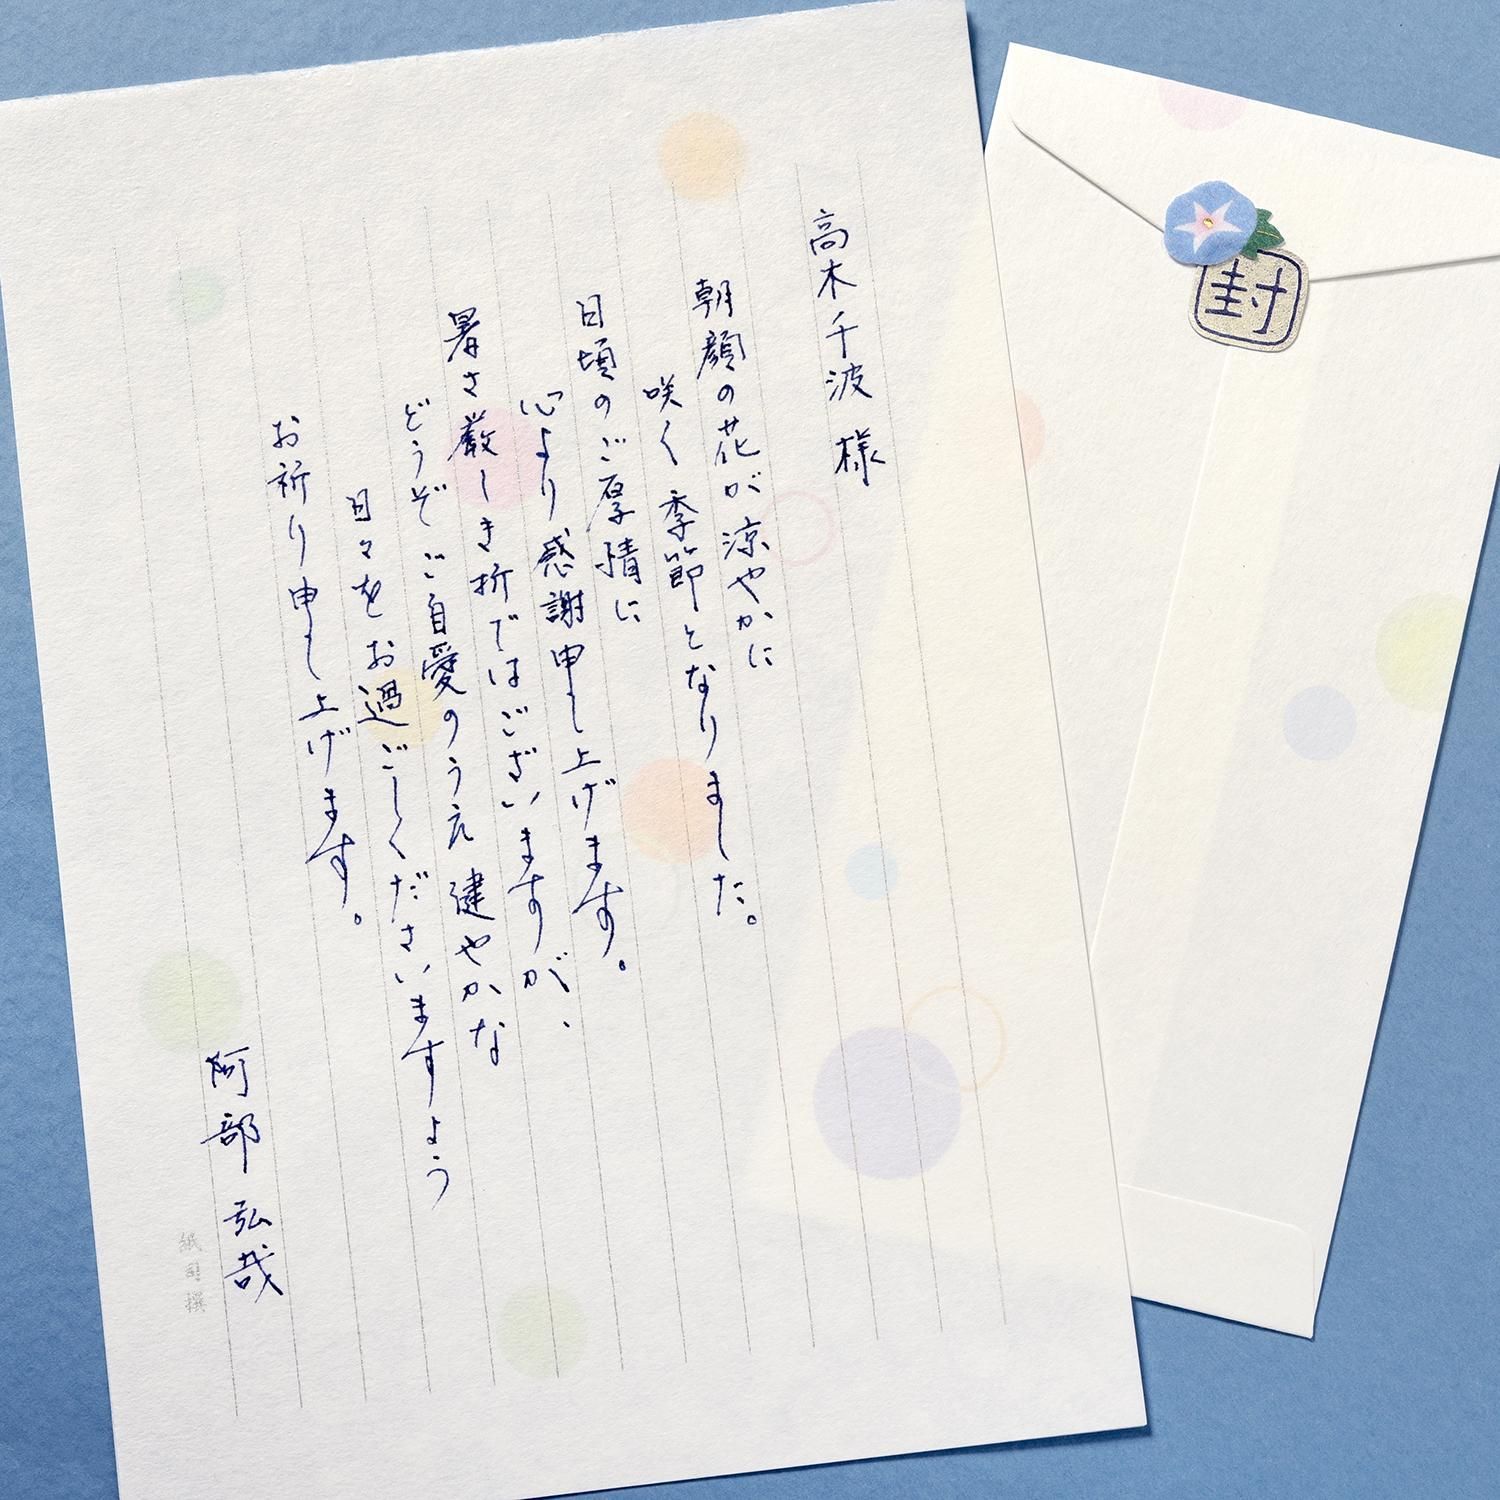 高木千波 様
朝顔の花が涼やかに
咲く季節となりました。
日頃のご厚情に
心より感謝申し上げます。
暑さ厳しき折ではございますが、
どうぞご自愛のうえ健やかな
日々をお過ごしくださいますよう
お祈り申し上げます。
阿部弘哉
紙司撰
封